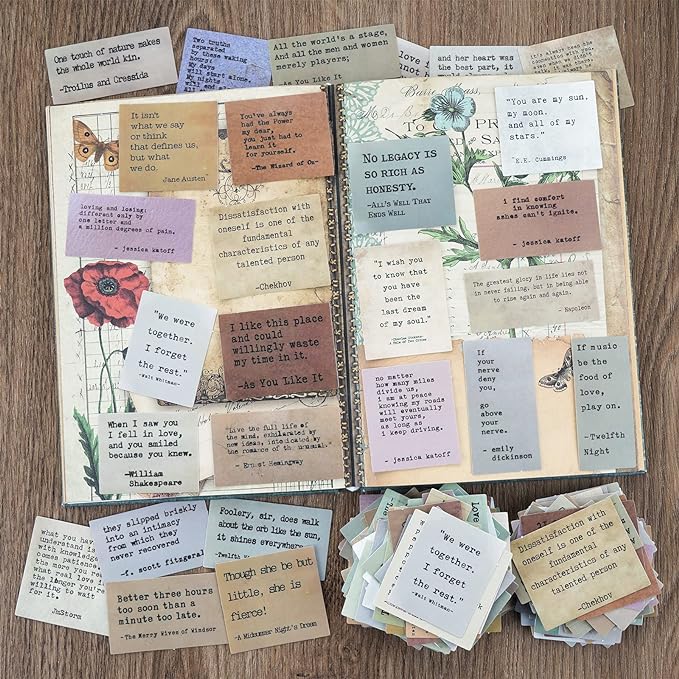 One touch of nature makes
the whole world kin.
-Troilus and Cressida
Two truths
separated
by these waking
hours:
My days
will start alone,
My nights
will end
All the world's a stage,
And all the men and women
merely players;
-As You Like It
love i
and her heart was
the best part, it
world
It isn't
what we say
or think
that defines us,
but what
we do.
Jane Austen
You've always
had the Power
my dear,
you just had to
learn it
for yourself.
-The Wizard of Oz-
loving and losing:
different only by
one letter and
a million degrees of pain.
- jessica katoff
Dissatisfaction with
oneself is one of the
fundamental
characteristics of any
talented person
-Chekhov
"We were
together.
I forget
the rest."
-Walt Whitman-
I like this place
and could
willingly waste
my time in it.
-As You Like It
When I saw you
I fell in love,
and you smiled
because you knew.
-William
Shakespeare
"Live the full life of
the mind, exhilarated by
new ideas, intoxicated by
the romance of the unusual."
- Ernest Hemingway
Barre, Mass,
TO
PR
SA
"You are my sun,
my moon,
and all of my
stars."
-E.E. Cummings
No legacy is
so rich as
honesty.
-All's Well That
Ends Well
i find comfort
in knowing
ashes can't ignite.
- jessica katoff
"I wish you
to know that
you have
been the
last dream
of my soul."
-Charles Dickens,
A Tale of Two Cities
The greatest glory in life lies not
in never falling, but in being able
to rise again and again.
- Napoleon
no matter
how many miles
divide us,
i am at peace
knowing my roads
will eventually
meet yours,
as long as
i keep driving.
- jessica katoff
If
your
nerve
deny
you,
go
above
your
nerve.
- emily
dickinson
If music
be the
food of
love,
play on.
-Twelfth
Night
what you hav
understand is
with knowledg
comes patience.
the more you
real love i
the longer you're
willing to wait
for it.
JmStorm
they slipped briskly
into an intimacy
from which they
never recovered
-f. scott fitzgeral
Foolery, sir, does walk
about the orb like the sun,
it shines everywhere
-Twelft
Better three hours
too soon than a
minute too late.
-The Merry Wives of Windsor
Though she be but
little, she is
fierce!
-A Midsummer Night's Dream
Love
"We were
together.
I forget
the rest."
-Walt Whitman-
Dissatisfaction with
oneself is one of the
fundamental
characteristics of any
talented person
-Chekhov